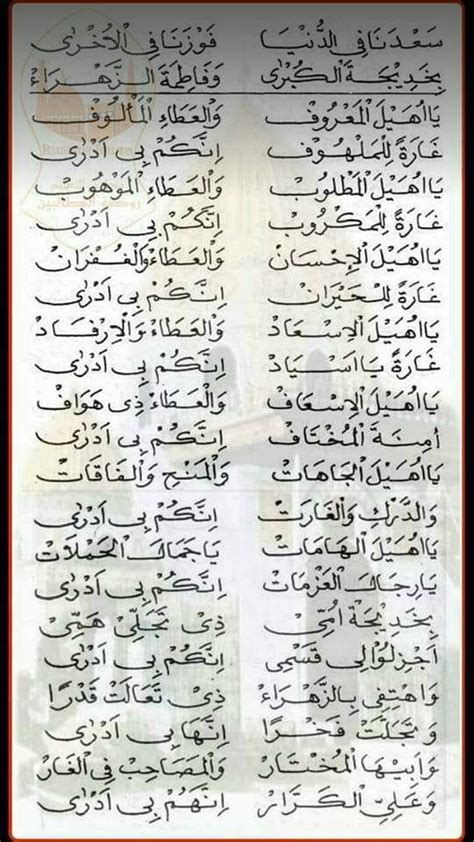 سَعْدَنَا فِي الدُّنْيَا فَوْزَنَا فِي الْأُخْرَى
بِخَدِيْجَةَ الْكُبْرَى وَفَاطِمَةَ الزَّهْرَاءْ
يَا اُهَيْلَ الْمَعْرُوْفْ وَالْعَطَاءِ الْمَأْلُوْفْ
غَارَةً لِلْمَلْهُوْفْ اِنَّكُمْ بِي اَدْرَى
يَا اُهَيْلَ الْمَطْلُوْبْ وَالْعَطَاءِ الْمَوْهُوْبْ
غَارَةً لِلْمَكْرُوْبْ اِنَّكُمْ بِي اَدْرَى
يَا اُهَيْلَ الْإِحْسَانْ وَالْعَطَاءِ وَالْغُفْرَانْ
غَارَةً لِلْحَيْرَانْ اِنَّكُمْ بِي اَدْرَى
يَا اُهَيْلَ الْاِسْعَادْ وَالْعَطَاءِ وَالْاِرْفَادْ
غَارَةً يَا اَسْيَادْ اِنَّكُمْ بِي اَدْرَى
يَا اُهَيْلَ الْاِسْعَافْ وَالْعَطَاءِ ذِي هَوَافْ
اَمِنَةَ الْمُخْتَافْ اِنَّكُمْ بِي اَدْرَى
يَا اُهَيْلَ الْجَاهَاتْ وَالْمَنْحِ وَالْفَاقَاتْ
وَالدَّرَكِ وَالْغَارَتْ اِنَّكُمْ بِي اَدْرَى
يَا اُهَيْلَ الْهَامَاتْ يَا جَمَاكَ الْحَمْلَاتْ
يَا رِجَاكَ الْعَزْمَاتْ اِنَّكُمْ بِي اَدْرَى
بِخَدِيْجَةَ اُمِّي ذِي تَجَلِّي هَمِّي
اَجْزِلُوْا لِي قَسْمِي اِنَّكُمْ بِي اَدْرَى
وَاهْتِفِي بِالزَّهْرَاءْ ذِي تَعَالَتْ قَدْرًا
وَتَجَلَّتْ فَخْرًا اِنَّهَا بِي اَدْرَى
وَاَبِيْهَا الْمُخْتَارْ وَالْمُصَاحِبْ فِي الْغَارْ
وَعَلِيِّ الْكَرَّارْ اِنَّهُمْ بِي اَدْرَى